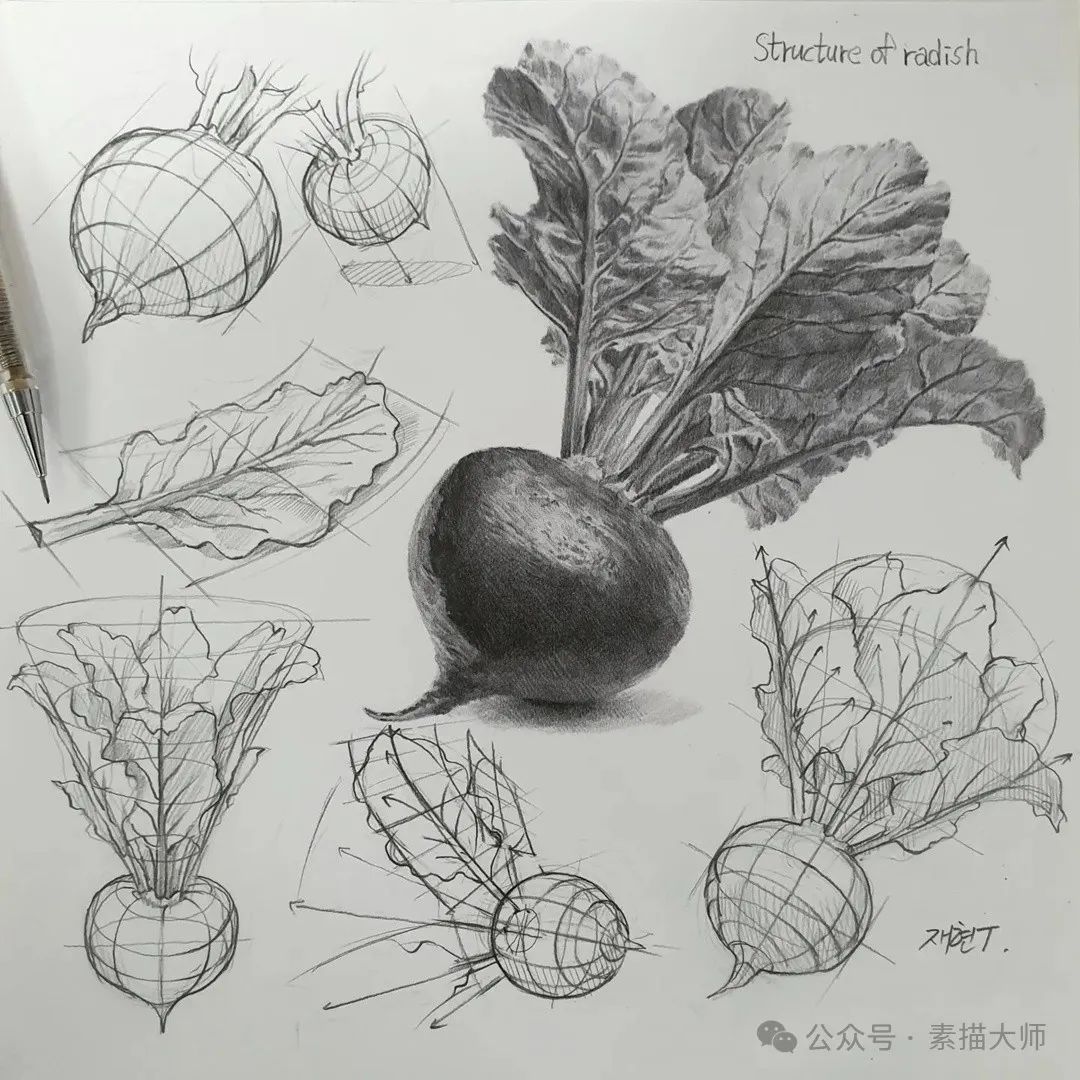 Structure of radish
재현T.
公众号 · 素描大师